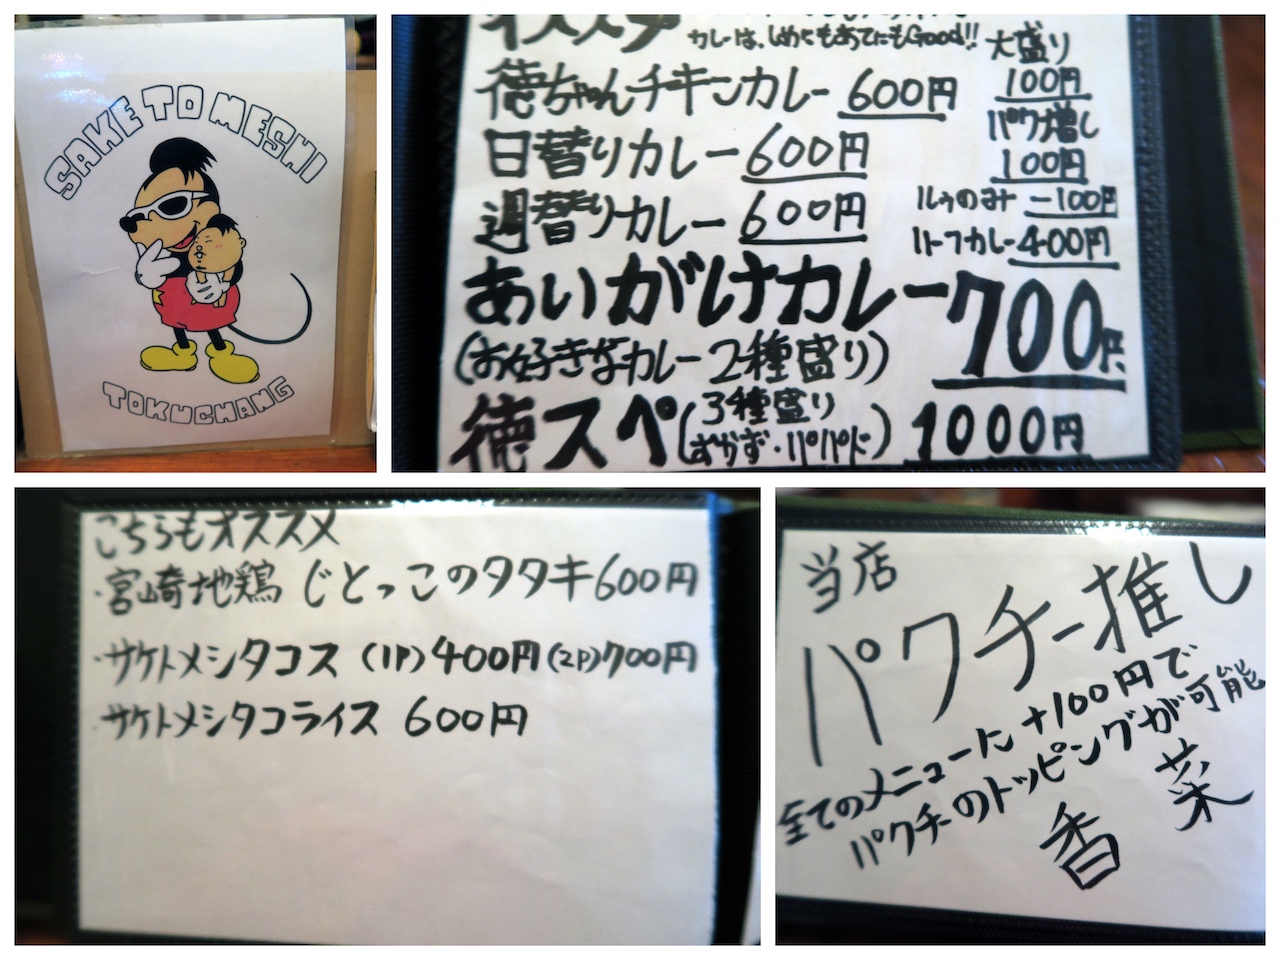 SAKE TO MESHI
TOKUCHANG
オススメ
カレーは、しめにもあてにもGood!!
徳ちゃんチキンカレー 600円
日替りカレー 600円
週替りカレー 600円
あいがけカレー 700円
(お好きなカレー 2種盛り)
徳スペ(3種盛り おかず・パパド) 1000円
大盛り
100円
パク増し
100円
ルゥのみ -100円
ハーフカレー 400円
こちらもオススメ
・宮崎地鶏 じとっこのタタキ 600円
・サケトメシタコス (1P) 400円 (2P) 700円
・サケトメシタコライス 600円
当店
パクチー推し
全てのメニューに+100円で
パクチーのトッピングが可能
香菜